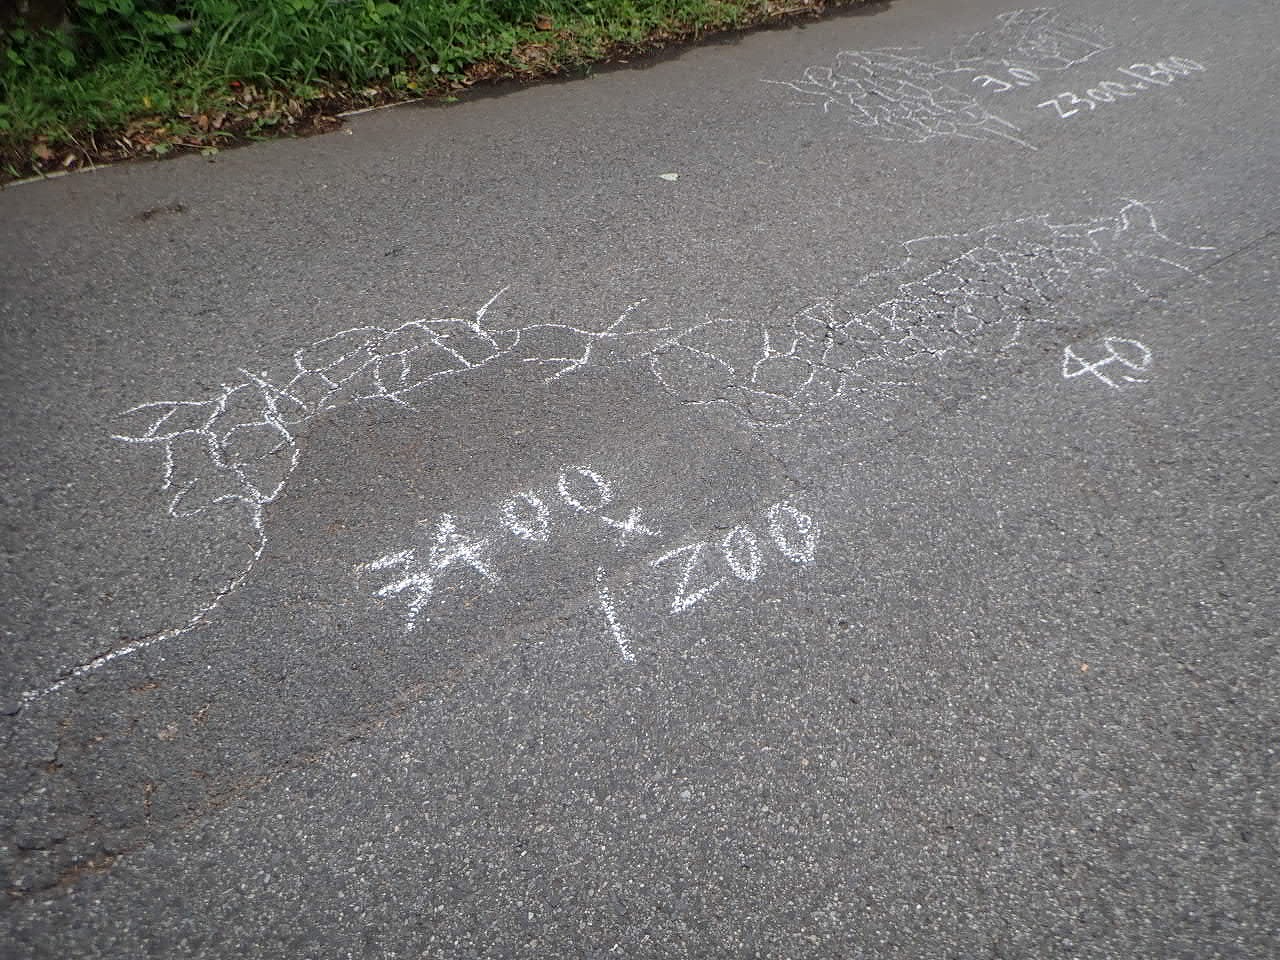 3.0
2300×1300
4.0
3400
×
1200